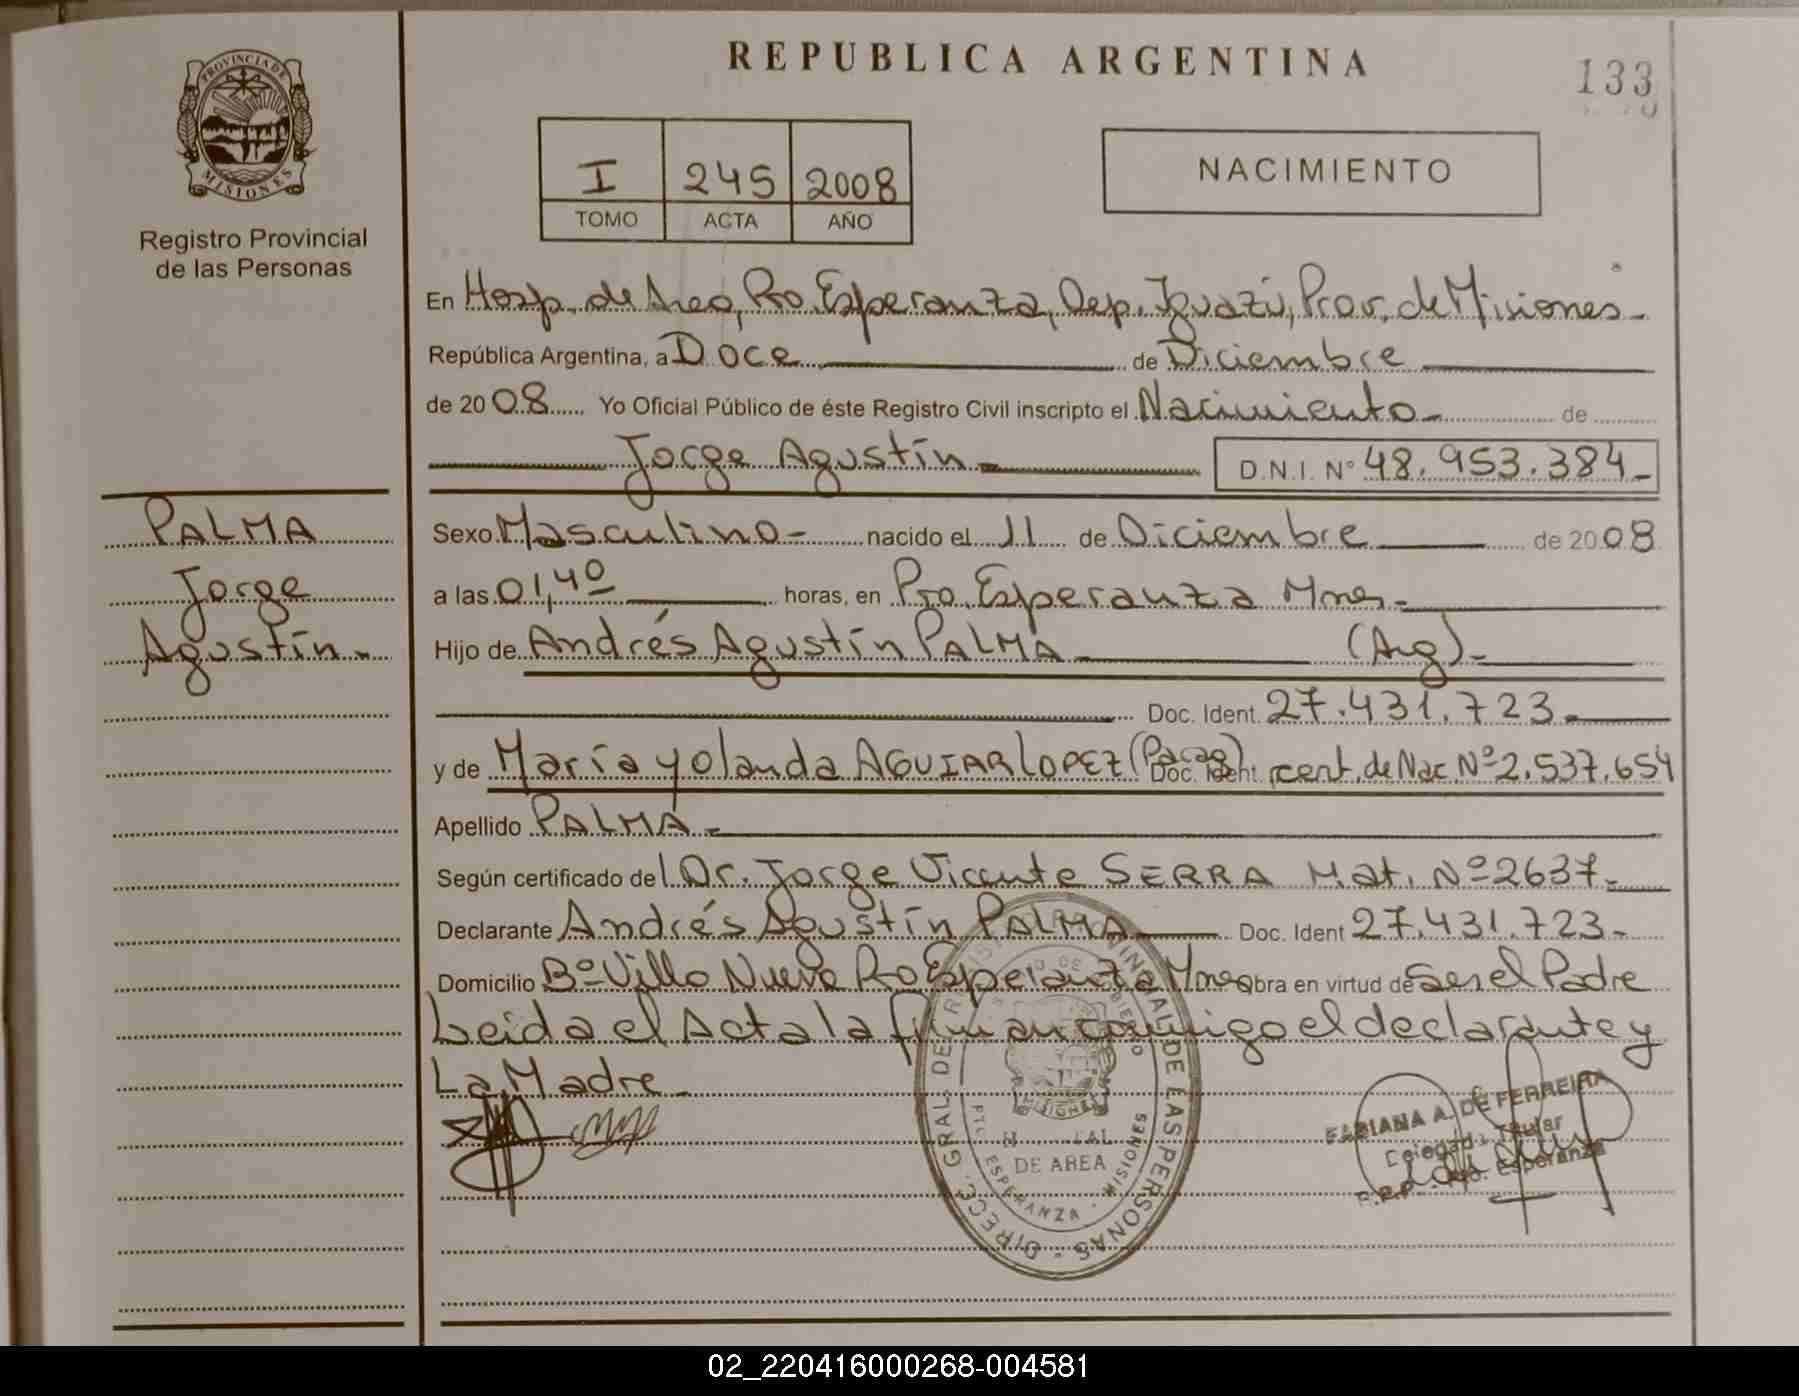 REPUBLICA ARGENTINA
133
PROVINCIA DE
MISIONES
Registro Provincial
de las Personas
I 245 2008
TOMO ACTA AÑO
NACIMIENTO
En Hosp. de Area, Pto. Esperanza, Dep. Iguazú, Prov. de Misiones-
República Argentina, a Doce de Diciembre
de 2008 Yo Oficial Público de éste Registro Civil inscripto el Nacimiento- de
Jorge Agustín- D.N.I. Nº 48.953.384-
PALMA
Jorge
Agustín-
Sexo Masculino- nacido el 11 de Diciembre de 2008
a las 01,40 horas, en Pto. Esperanza Mnes-
Hijo de Andrés Agustín PALMA (Arg)-
Doc. Ident. 27.431.723-
y de María Yolanda AGUIAR LOPEZ (Parag) Doc. Ident. cert. de Nac. Nº 2.537.654
Apellido PALMA-
Según certificado del Dr. Jorge Vicente SERRA Mat. Nº 2637-
Declarante Andrés Agustín PALMA Doc. Ident 27.431.723-
Domicilio Bº Villa Nueva Pto Esperanza Mnes Obra en virtud de Ser el Padre
Leida el Acta la firman conmigo el declarante y
La Madre-
DIRECC. GRAL. DEL PROVINCIAL DE LAS PERSONAS
MISIONES
DE AREA
PTO. ESPERANZA - MISIONES
FABIANA A. DE FERREIRA
Delegada Titular
R.P.P. Pto. Esperanza
02_220416000268-004581